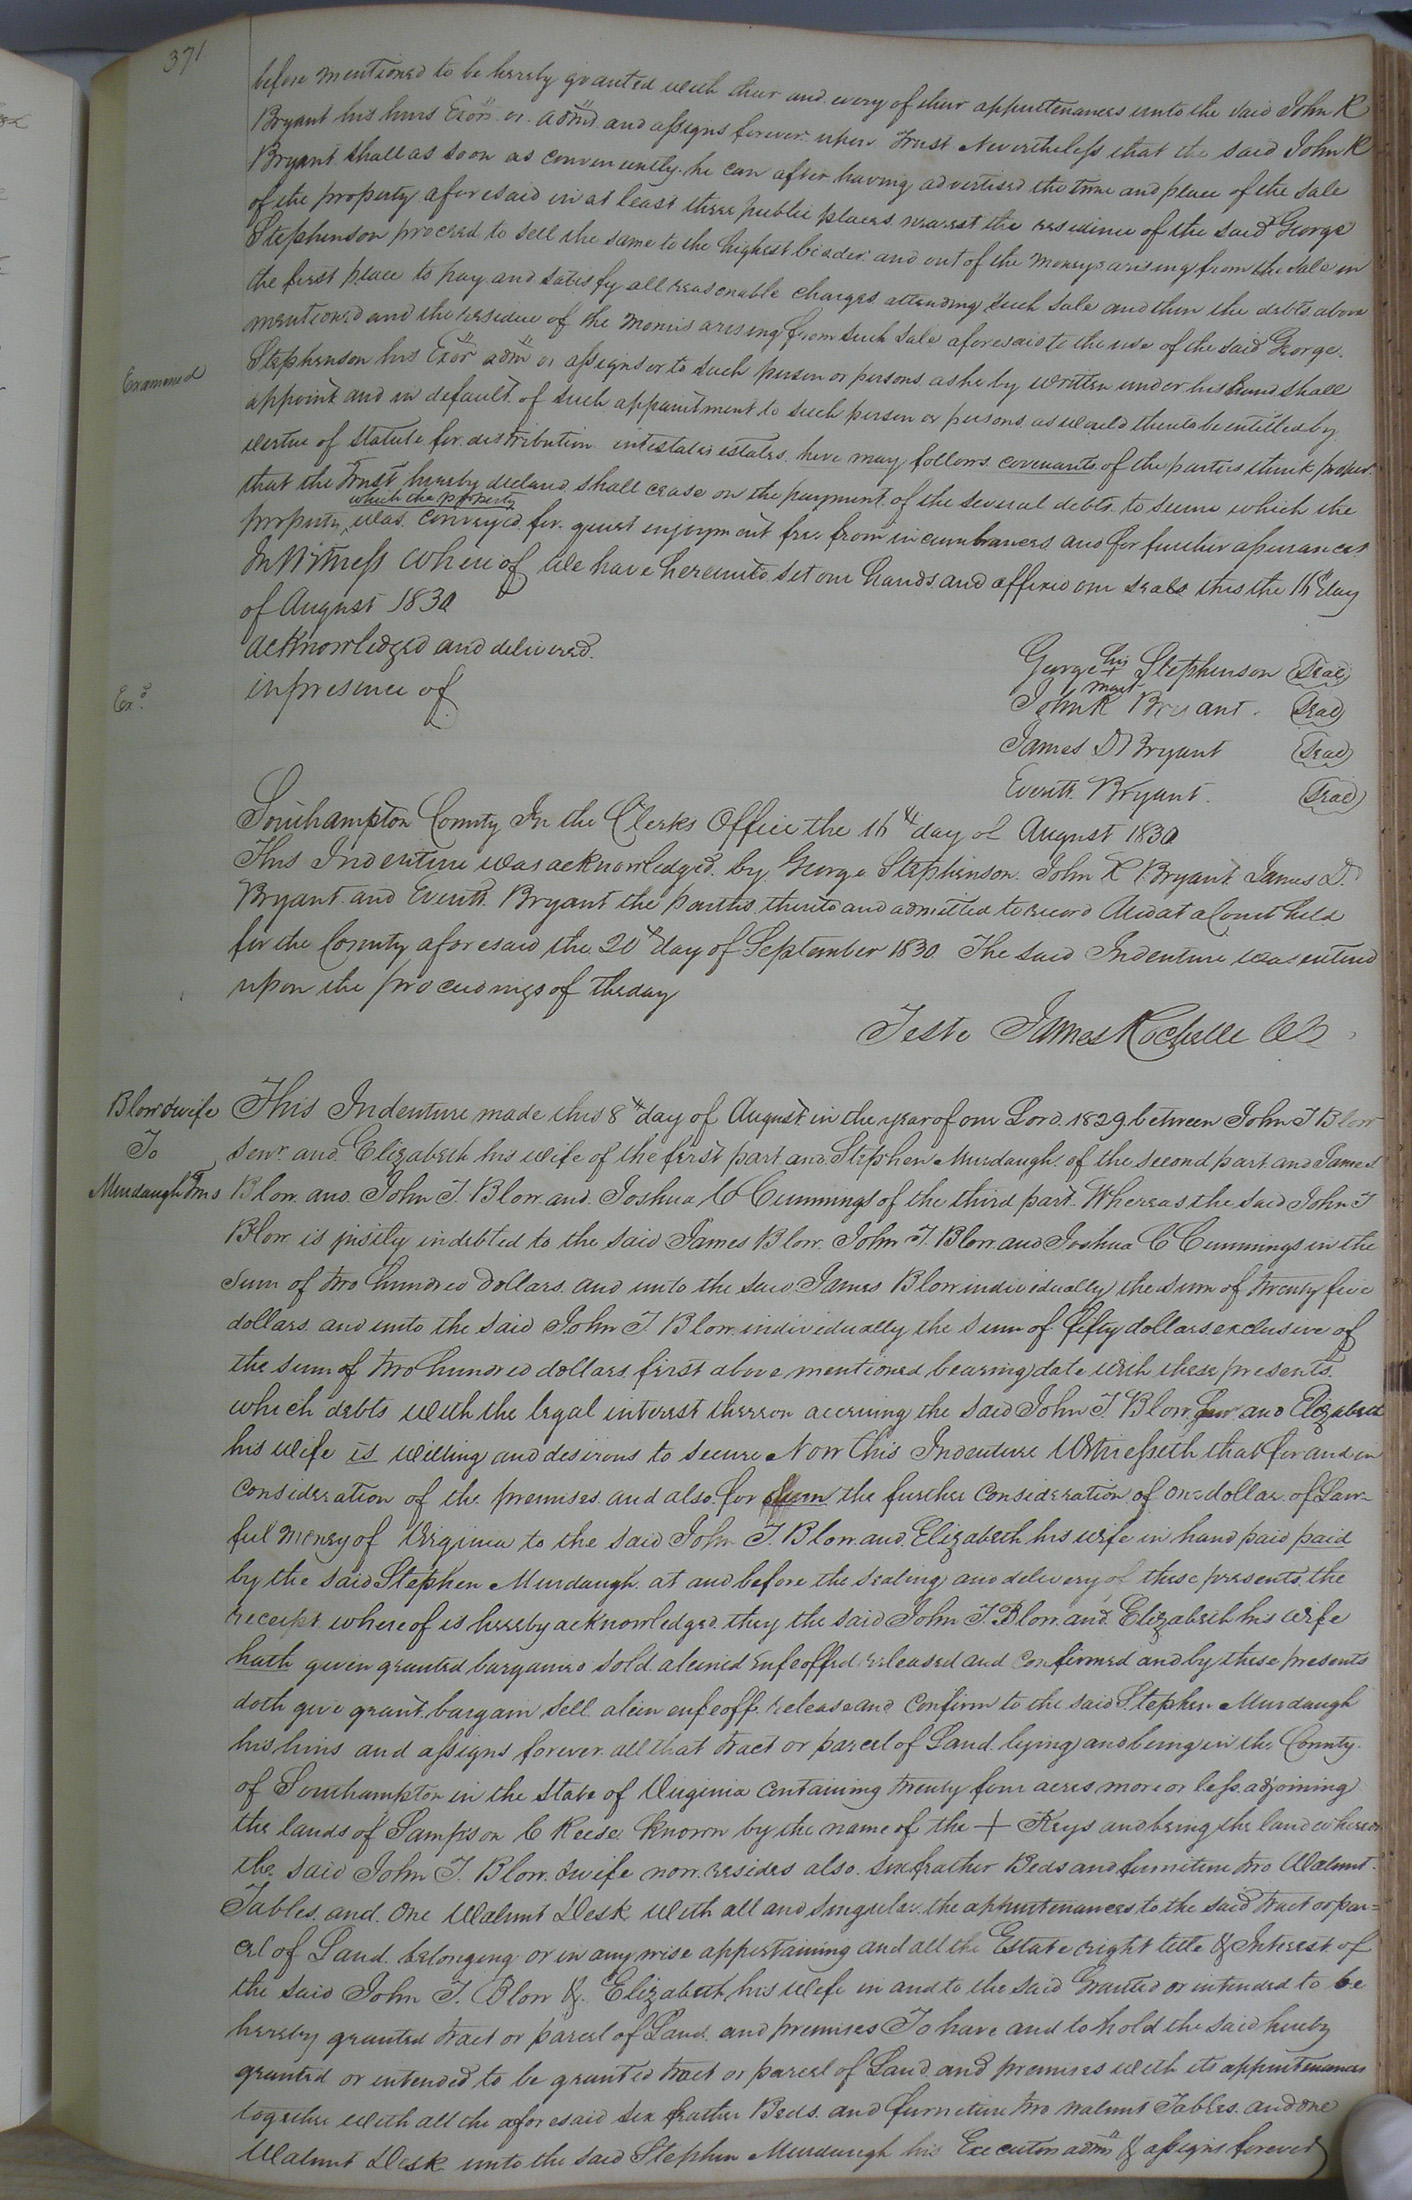 371
before mentioned to be hereby granted with their and every of their appurtenances unto the said John R
Bryant his heirs Exors. or. admrs. and assigns forever upon Trust Nevertheless that the said John R
Bryant shall as soon as conveniently he can after having advertised the time and place of the sale
of the property aforesaid in at least three public places nearest the residence of the said George
Stephenson proceed to sell the same to the highest bidder and out of the Moneys arising from the sale in
the first place to pay and satisfy all reasonable charges attending such sale and then the debts above
mentioned and the residue of the monies arising from such sale aforesaid to the use of the said George
Examined
Stephenson his Exor admr or assigns or to such person or persons as he by written under his hand shall
appoint and in default of such appointment to such person or persons as would thereto be entitled by
virtue of Statute for distribution intestates estates. here may follows covenants of the parties think proper
that the Trust hereby declared shall cease on the payment of the several debts to secure which the
which the property
property was conveyed for quiet enjoyment free from incumbrances and for further assurances
In Witness where of We have hereunto set our hands and affixed our seals this the 16th day
of August 1830
acknowledged and delivered.
in presence of
George his + mark Stephenson (Seal)
Exd.
John R Bryant. (Seal)
James D Bryant (Seal)
Everitt Bryant. (Seal)
Southampton County In the Clerks Office the 16th day of August 1830
This Indenture was acknowledged by George Stephenson John R Bryant James D.
Bryant and Everitt Bryant the parties thereto and admitted to record And at a Court held
for the County aforesaid the 20th day of September 1830. The said Indenture was entered
upon the proceedings of the day
Teste James Rochelle CC
Blow & wife
To
Murdaugh Trus
This Indenture made this 8th day of August in the year of our Lord 1829 between John T Blow
senr. and Elizabeth his wife of the first part and Stephen Murdaugh of the second part and James
Blow and John T. Blow and Joshua C Cummings of the third part. Whereas the said John T
Blow is justly indebted to the said James Blow. John T. Blow and Joshua C Cummings in the
sum of two hundred dollars and unto the said James Blow individually the sum of twenty five
dollars and unto the said John T Blow individually the sum of fifty dollars exclusive of
the sum of two hundred dollars first above mentioned bearing date with these presents
which debts with the legal interest thereon accruing the said John T. Blow and Elizabeth
his wife is willing and desirous to secure Now this Indenture Witnesseth that for and in
consideration of the premises and also for the further consideration of one dollar of Law-
ful money of Virginia to the said John T. Blow and Elizabeth his wife in hand paid paid
by the said Stephen Murdaugh at and before the sealing and delivery of these presents the
receipt whereof is hereby acknowledged they the said John T. Blow and Elizabeth his wife
hath given granted bargained sold aleined enfeoffed released and confirmed and by these presents
doth give grant bargain sell alein enfeoff release and confirm to the said Stephen Murdaugh
his heirs and assigns forever all that tract or parcel of Land lying and being in the County
of Southampton in the State of Virginia containing twenty four acres more or less adjoining
the lands of Sampson C Reese known by the name of the + Keys and being the land whereon
the said John T. Blow & wife now resides also six feather Beds and furniture two Walnut
Tables. and. One Walnut Desk with all and singular the appurtenances to the said tract or par=
cel of Land belonging or in any wise appertaining and all the Estate right title & Interest of
the said John T. Blow & Elizabeth his wife in and to the said Granted or intended to be
hereby granted tract or parcel of Land and premises To have and to hold the said hereby
granted or intended to be granted tract or parcel of Land and premises with its appurtenances
together with all the aforesaid six feather Beds and furniture two walnut Tables and one
Walnut Desk unto the said Stephen Murdaugh his Executors admrs & assigns forever